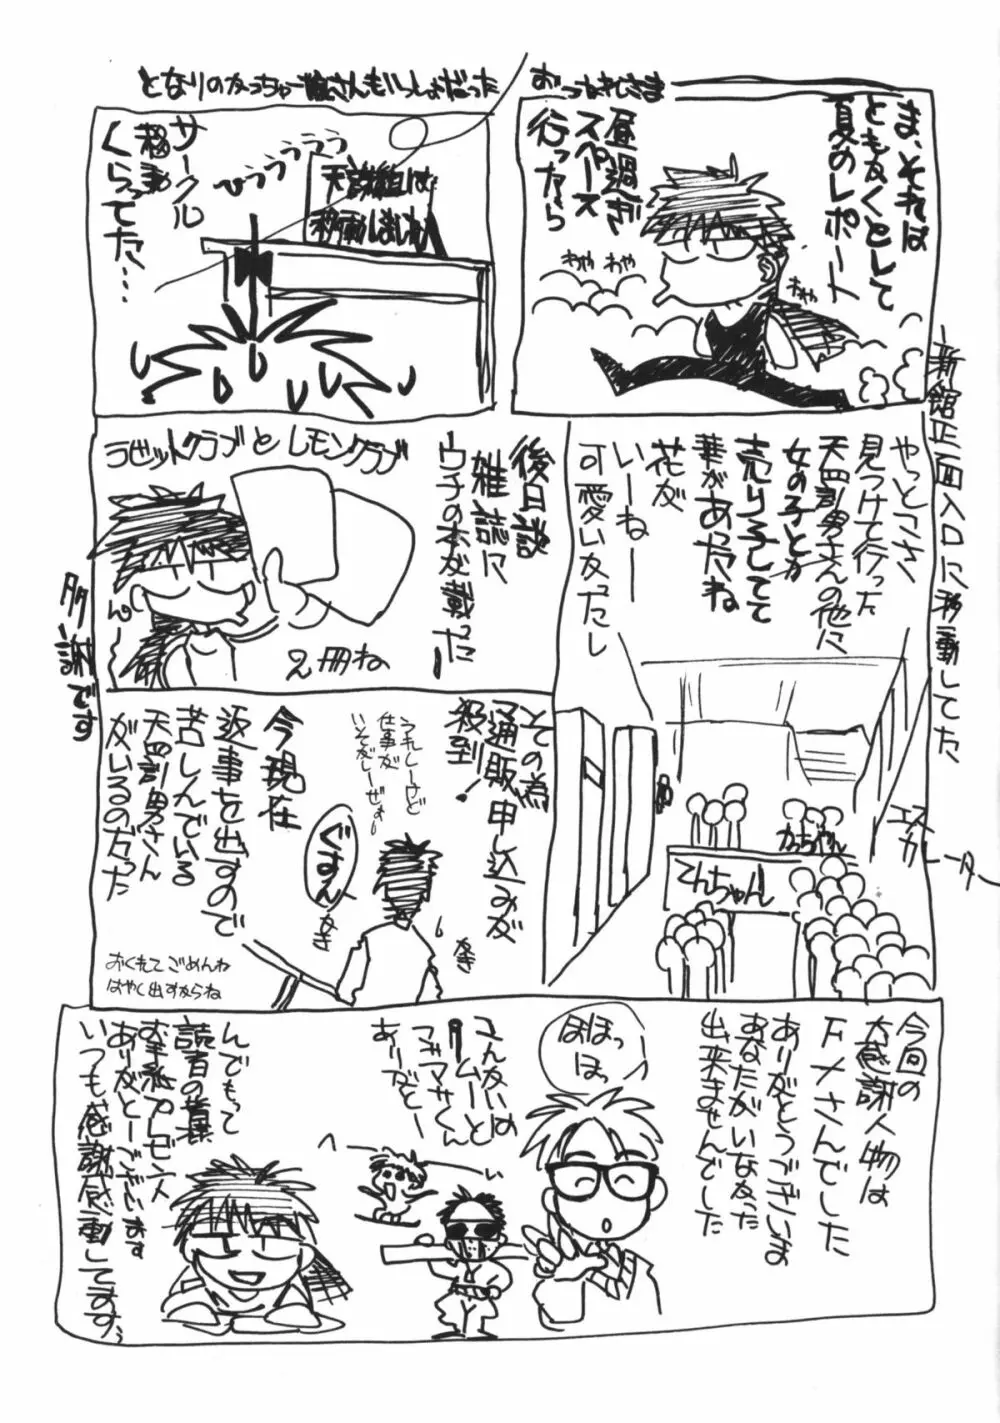 ま、それは
ともかくとして
夏のレポート
昼過ぎ
スペース
行ったら
わや わや
わや
となりのかっちゃー
さんもいっしょだった
サークル
移動
くらってた…
ひゅうううう
天誅組は
移動しました
新館正面入口に移動してた
やっとこさ
見つけて行った
天四郎男さんの他に
女の子とか
売り子してて
華があったね
花が
いーねー
可愛いかったし
エスカレーター
かっちゃん
てんちゃん
ラビットクラブとレモンクラブ
後日談
雑誌に
ウチの本が載ったー
2冊ね
多謝です
その為
通販申し込みが
殺到!
うれしーけど
仕事が
いそがしーぜぇー
ぐはん
今現在
返事を出すので
苦しんでいる
天四郎男さん
がいるのだった
おくれてごめんね
はやく出すからね
今回の
大感謝人物は
下〆さんでした
ありがとうございます
あなたがいなかったら
出来ませんでした
ほほっほっ
こんかいは
ムーと
マサくん
ありがとー
んでもって
読者の皆様
お手紙プレゼント
ありがとーございます
いつも感謝感動してます